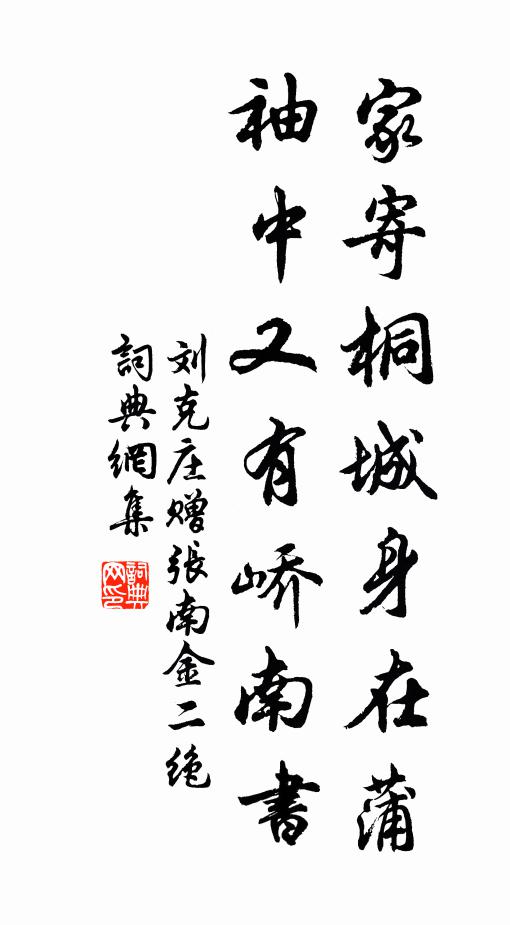 家寄桐城身在蒲
袖中又有峤南書
刘克庄赠張南金二绝
詞典網集
詞典网印